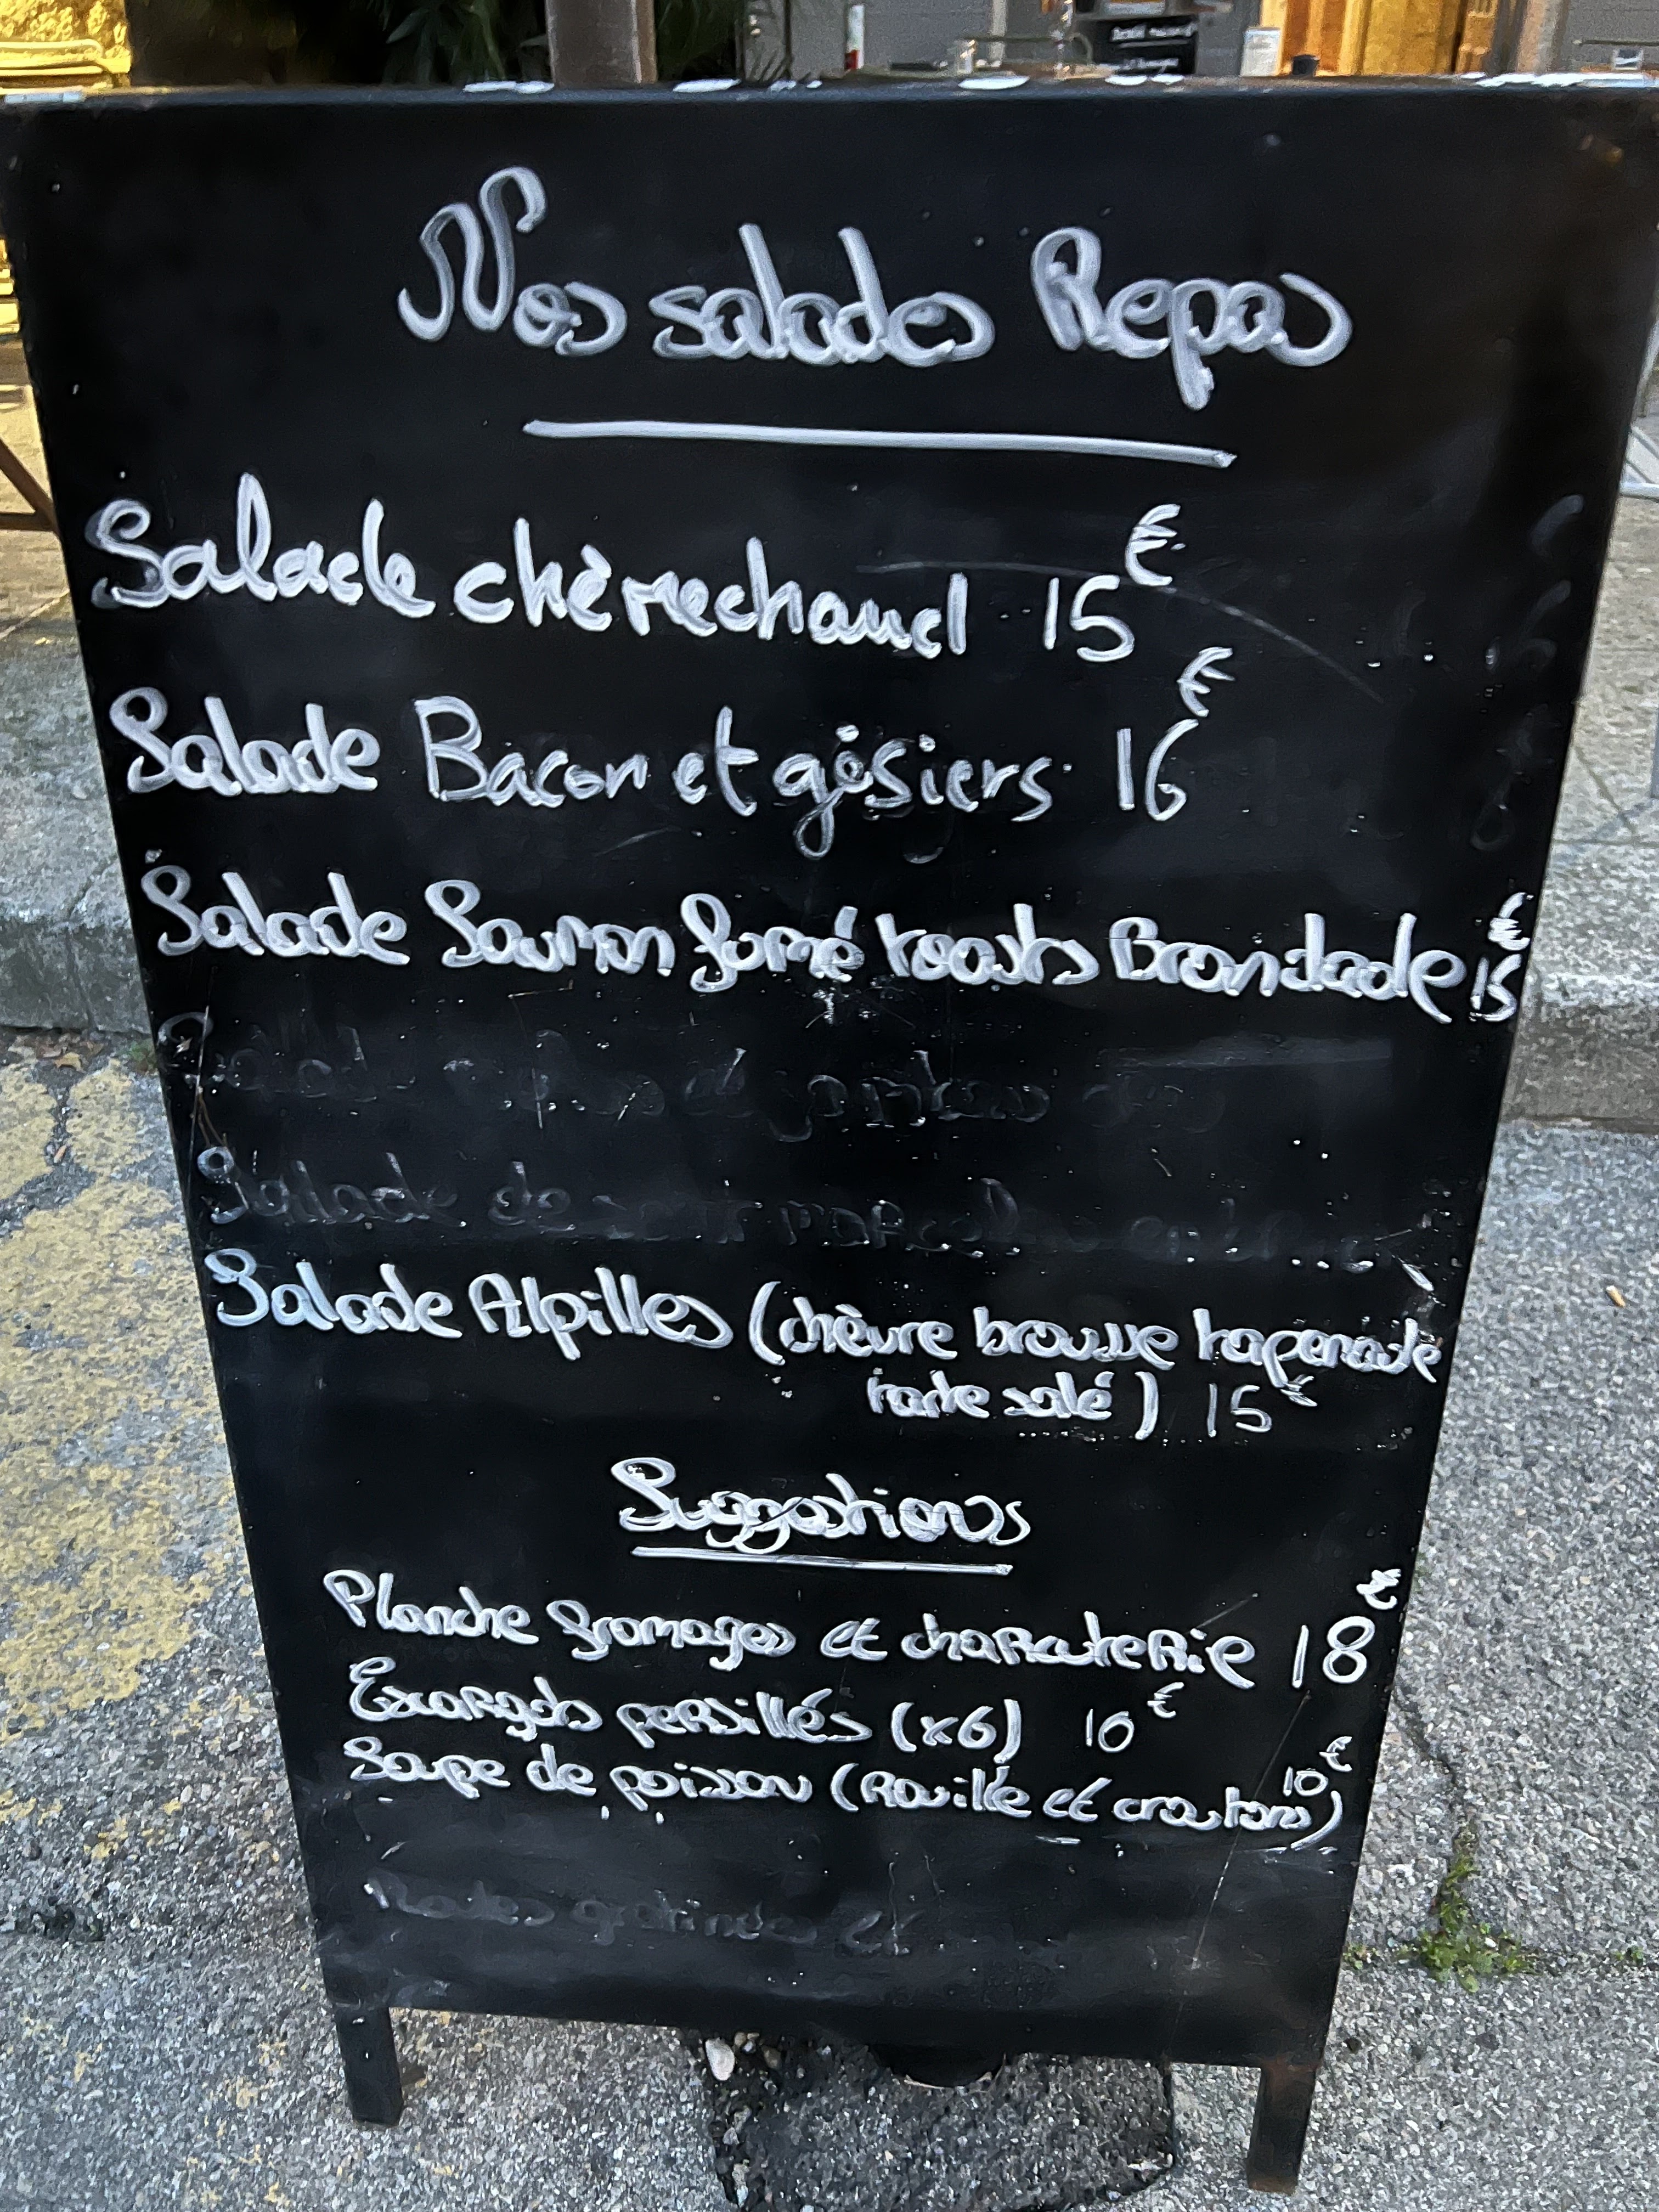 Nos salades Repas
Salade chèvrechaud 15€
Salade Bacon et gésiers 16€
Salade Saumon fumé toasts Brandade 15€
Salade de
Salade Alpilles (chèvre brousse tapenade
tarte salé) 15€
Suggestions
Planche fromages et charcuterie 18€
Escargots persillés (x6) 10€
Soupe de poisson (Rouille et croutons) 10€